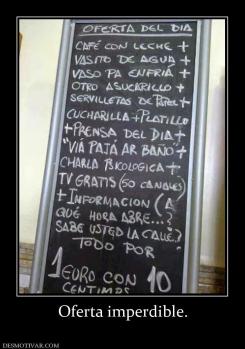 OFERTA DEL DIA
CAFÉ CON LECHE +
VASITO DE AGUA +
VASO PA ENFRIÁ +
OTRO ASUCARILLO +
SERVILLETAS DE PAPEL +
CUCHARILLA + PLATILLO
+ PRENSA DEL DIA +
"VIÁ PAJÁ AR BAÑO" +
CHARLA PSICOLOGICA +
TV GRATIS (50 CANALES)
+ INFORMACION (A
QUÉ HORA ABRE...?
SABE USTED LA CALLE..)
TODO POR
1 EURO CON 10
CENTIMOS
Oferta imperdible.
DESMOTIVAR.COM